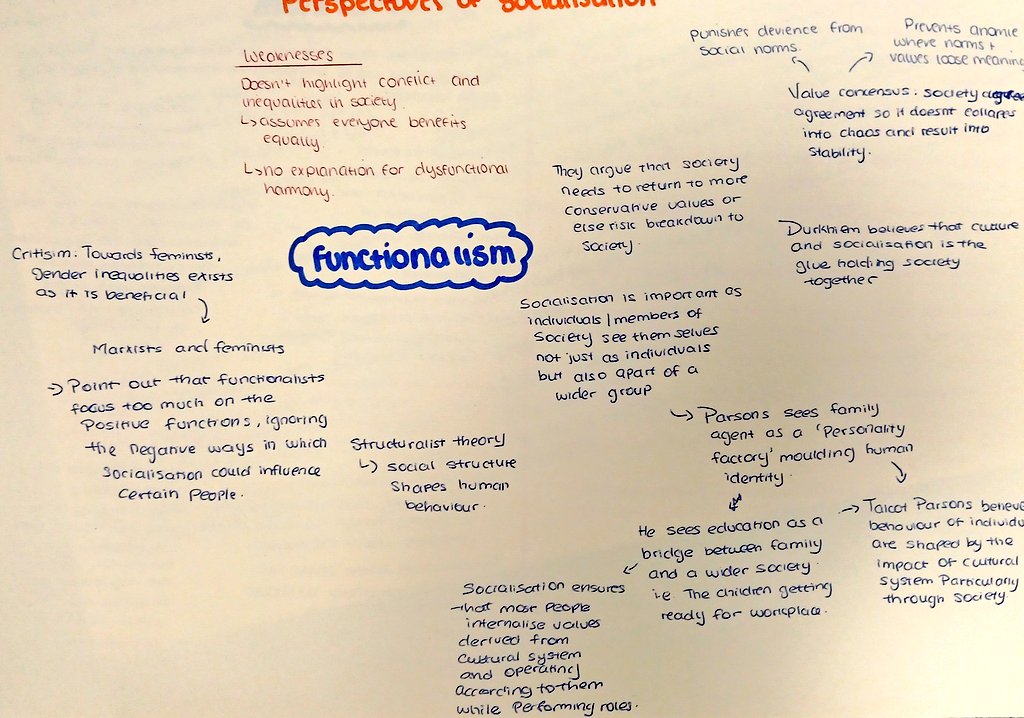 Perspectives of Socialisation
Weaknesses
Doesn't highlight conflict and
inequalities in society.
↳ assumes everyone benefits
equally.
↳ no explanation for dysfunctional
harmony.
punishes devience from
social norms.
Prevents anomie
where norms +
values loose meaning
Value concensus: society
agreement so it doesnt collapes
into chaos and result into
stability.
They argue that society
needs to return to more
conservative values or
else risk breakdown to
society.
Functionalism
Durkhiem believes that culture
and socialisation is the
glue holding society
together
Critisim: Towards feminists,
Gender inequalities exists
as it is beneficial
Marxists and feminists
→ Point out that functionalists
focus too much on the
Positive functions, ignoring
the negative ways in which
socialisation could influence
certain people.
Structuralist theory
↳ social structure
shapes human
behaviour.
Socialisation is important as
individuals / members of
Society see them selves
not just as individuals
but also apart of a
wider group
↳ Parsons sees family
agent as a 'Personality
factory' moulding human
identity.
He sees education as a
bridge between family
and a wider society.
i.e. The children getting
ready for workplace.
→ Talcot Parsons believe
behaviour of individu
are shaped by the
impact of cultural
system Particularly
through society.
Socialisation ensures
that most people
internalise values
derived from
cultural system
and operating
according to them
while Performing roles.